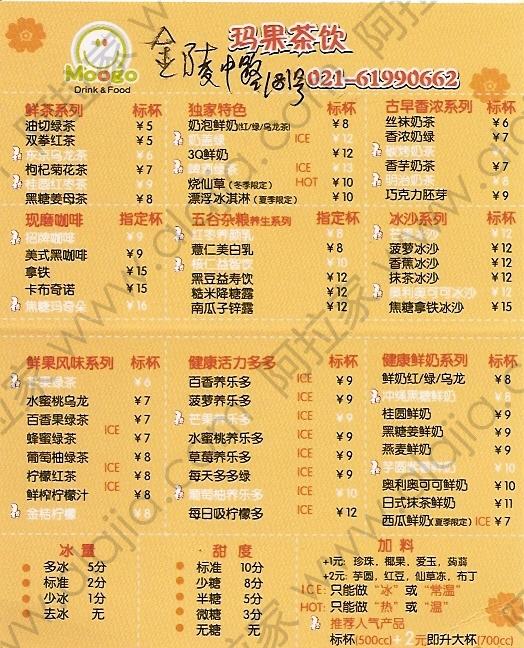 Moogo
Drink & Food
玛果茶饮
金陵中路
021-61990662
鲜茶系列 标杯
油切绿茶 ¥5
双拳红茶 ¥5
东京乌龙茶 ¥6
枸杞菊花茶 ¥7
桂圆红枣茶 ¥9
黑糖姜母茶 ¥8
独家特色 标杯
奶泡鲜奶(红/绿/乌龙茶) ¥8
奶盖绿 ICE ¥12
3Q鲜奶 ¥12
啤酒绿茶 ICE ¥13
烧仙草(冬季限定) HOT ¥10
漂浮冰淇淋(夏季限定) ¥10
古早香浓系列 标杯
丝袜奶茶 ¥6
香浓奶绿 ¥7
香芋奶茶 ¥7
巧克力胚芽 ¥9
现磨咖啡 指定杯
招牌咖啡 ¥9
美式黑咖啡 ¥9
拿铁 ¥15
卡布奇诺 ¥15
焦糖玛奇朵 ¥16
五谷杂粮养生系列 指定杯
红枣养颜乳 ¥8
薏仁美白乳 ¥8
黑豆益寿饮 ¥12
糙米降糖露 ¥12
南瓜子锌露 ¥12
冰沙系列 指定杯
芒果冰沙 ¥12
菠萝冰沙 ¥12
香蕉冰沙 ¥12
抹茶冰沙 ¥12
奥利奥可可冰沙 ¥12
焦糖拿铁冰沙 ¥15
鲜果风味系列 标杯
芒果绿茶 ¥6
水蜜桃乌龙 ¥7
百香果绿茶 ¥7
蜂蜜绿茶 ICE ¥7
葡萄柚绿茶 ¥8
柠檬红茶 ICE ¥8
鲜榨柠檬汁 ICE ¥8
金桔柠檬 ¥8
健康活力多多 标杯
百香养乐多 ICE ¥9
菠萝养乐多 ICE ¥9
芒果养乐多 ICE ¥9
水蜜桃养乐多 ICE ¥9
草莓养乐多 ICE ¥9
每天多多绿 ICE ¥9
葡萄柚养乐多 ICE ¥10
每日吸柠檬多 ICE ¥12
健康鲜奶系列 标杯
鲜奶红/绿/乌龙 ¥8
冲绳黑糖鲜奶 ¥8
桂圆鲜奶 ¥9
黑糖姜鲜奶 ¥9
燕麦鲜奶 ¥9
芋圆鲜奶 ¥10
奥利奥可可鲜奶 ¥10
日式抹茶鲜奶 ¥11
西瓜鲜奶(夏季限定) ICE ¥7
冰量
多冰 5分
标准 2分
少冰 1分
去冰 无
甜度
标准 10分
少糖 8分
半糖 5分
微糖 3分
无糖 无
加料
+1元: 珍珠、椰果、爱玉、蒟蒻
+2元: 芋圆、红豆、仙草冻、布丁
ICE: 只能做“冰”或“常温”
HOT: 只能做“热”或“温”
推荐人气产品
标杯(500cc)+2元即升大杯(700cc)
阿拉家 www.alajia.com